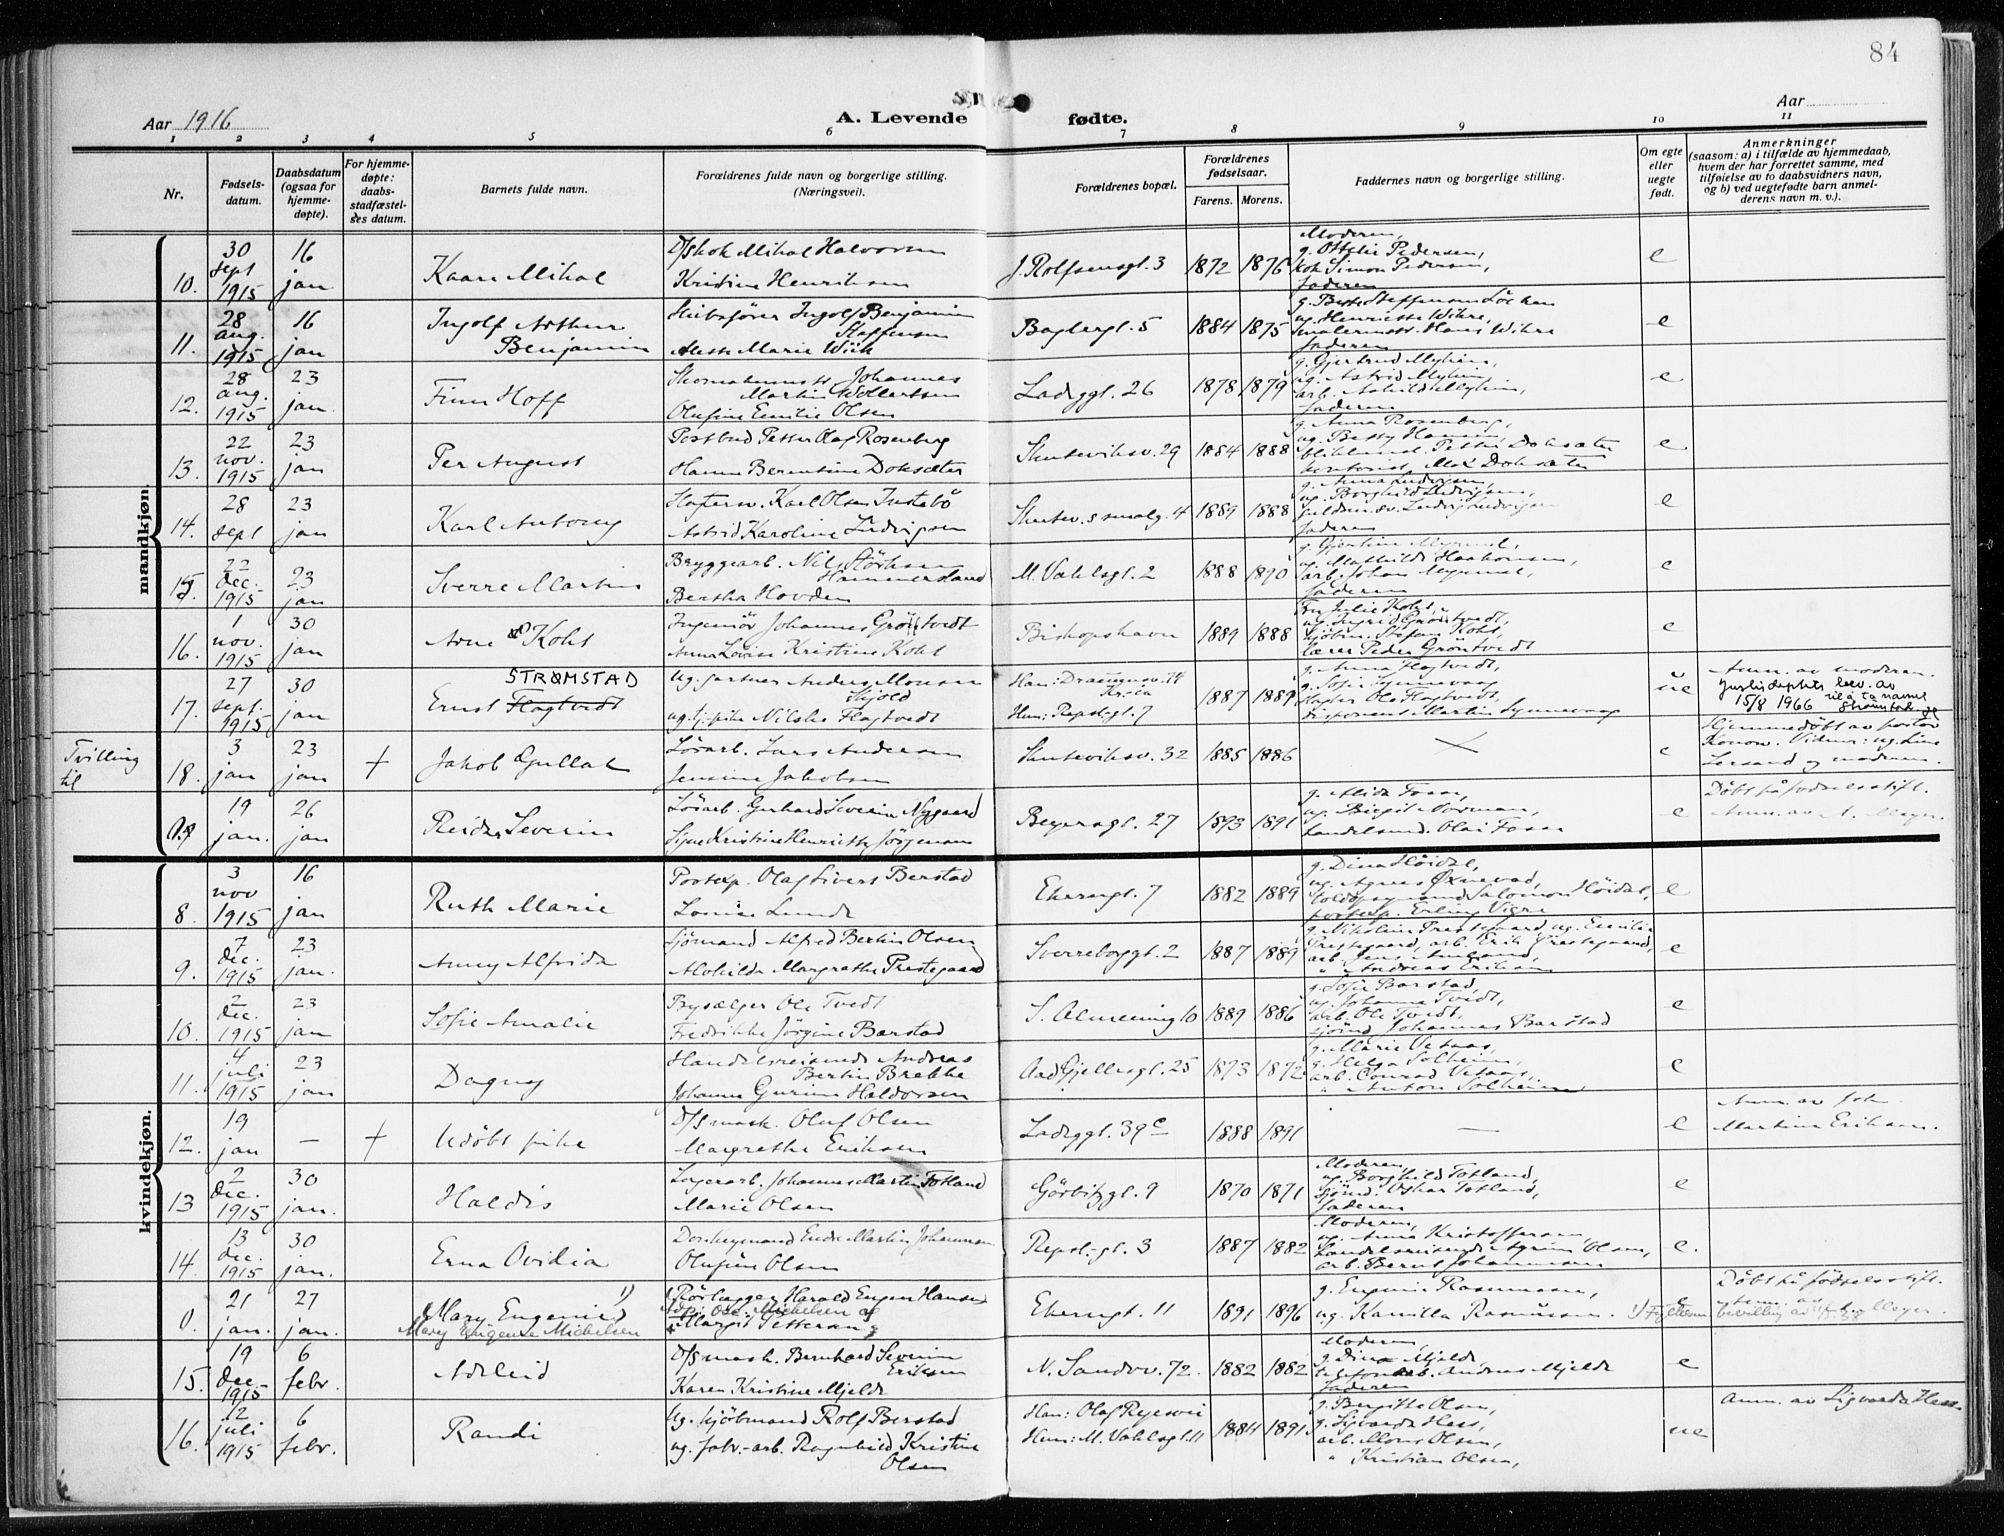 84
Aar 1916
A. Levende fødte.
Aar
1 2 3 4 5 6 7 8 9 10 11
Nr.
Fødsels-
datum.
Daabsdatum
(ogsaa for
hjemme-
døpte).
For hjemme-
døpte:
daabs-
stadfæstel-
ses datum.
Barnets fulde navn.
Forældrenes fulde navn og borgerlige stilling.
(Næringsvei).
Forældrenes bopæl.
Forældrenes
fødselsaar.
Farens. Morens.
Faddernes navn og borgerlige stilling.
Om egte
eller
uegte
født.
Anmerkninger
(saasom: a) i tilfælde av hjemmedaab,
hvem der har forrettet samme, med
tilføielse av to daabsvidners navn,
og b) ved uegtefødte barn anmel-
derens navn m. v.).
mandkjøn.
10. 30 sept 1915 16 jan Kaare Mikal
D/Skok Mikal Halvorsen
Kristine Henriksen
J. Rolfsensgt. 3 1872 1876
Moderen,
g. Ottilie Pedersen,
kok Simon Pedersen,
faderen
e
11. 28 aug. 1915 16 jan Ingolf Arthur
Benjamin
Skibsfører Ingolf Benjamin
Steffensen
Marie Wiik
Baglergt. 5 1884 1875
ug. Henriette Wihre,
malermstr. Hans Wihre
faderen
e
12. 28 aug. 1915 23 jan. Finn Hoff
Skomakermstr. Johannes
Martin Wollertsen
Olufine Emilie Olsen
Ladeggt. 26 1878 1879
faderen
e
13. 22 nov. 1915 23 jan Per August
Postbud Petter Olaf Rosenberg
Hanna Berentine Doksæter
Skuteviksv. 29 1884 1888
g. Anna Rosenberg,
ug. Betty Hansen,
Petter Doksæter
kontorist Doksæter
e
14. 28 sept 23 jan Karl Antony
Karl Olsen Instebö
Astrid Karoline Ludvigsen
Skutev. smalg. 4 1889 1888
g. Anna Ludvigsen,
ug. Borghild Ludvigsen,
Ludvig Ludvigsen
faderen
e
15. 22 Dec. 1915 23 jan Sverre Martin
Bryggearb. Nils Störksen
Hammersland
Bertha Hovden
M. Vahlsgt. 2 1888 1890
ug. Mathilde Haakonsen,
arb. Johan
faderen
e
16. 1 nov. 1915 30 jan Arne Kohs
Ingeniör Johannes Gröntvedt
Anna Lovise Kristine Kohs
Bispshavn 1889 1888
Fru Julie Kohs,
ug. Sigrid Gröntvedt,
kjöbm. Stefan Kohs,
lærer Peder Gröntvedt
e
17. 27 sept. 1915 30 jan STRØMSTAD
Ernst Flogtvedt
Ug. gartner Anders Monsen
Skjold
ug. tj.pike Nilske Flogtvedt
Han: Drammensv. 74
Kr.ia
Hun: Repsl-gt. 7
1887 1889
g. Anna Flogtvedt,
Ole Flogtvedt,
disponent Martin
ue
Anm. av moderen.
Justisdeptets bev. av
15/8 1966 til å ta navnet
Strømstad
Tvilling
til
18. 3 jan 23 jan + Jakob Gullak
Lösarb. Lars Andersen
Jensine Jakobsen
Skuteviksv. 32 1885 1886
e
Hjemmedöbt av pastor
Konow. Vidner: ug. Line
og moderen.
19 jan. 26 jan Reidar Severin
Lösarb. Gerhard Severin Nygaard
Signe Kristine Henriette Jörgensen
Beyersgt. 27 1893 1891
g. Alida Fosse,
ug. Birgit Norman,
handelsmd. Olai Fosse
e
Döbt på födselsstift.
Anm. av A. Meyer.
kvindekjøn.
8. 3 nov 1915 16 jan Ruth Marie
Postexp. Olaf Sivert Berstad
Lovise Lunde
Ekerengt. 7 1882 1889
g. Dina Höidal,
ug. Agnes Øxnevad,
Salomon Höidal,
postexp. Erling Vigre
e
9. 7 dec. 1915 23 jan. Anny Alfrida
Sjömand Alfred Bertin Olsen
Alvhilda Margrethe Prestegaard
Sverreborggt. 2 1887 1889
g. Nikoline Prestegaard, ug. Emilie
Prestegaard, arb. Erik Prestegaard,
" Andreas Eriksen
e
10. 2 dec. 1915 23 jan Sofie Amalie
Bysælger Ole Tvedt
Fredrikke Jörgine Barstad
S. Almenning 10 1889 1886
g. Sofie Barstad,
ug. Johanna Tvedt,
arb. Ole Tvedt,
sjömd Johannes Barstad
e
11. 4 juli 1915 23 jan Dagny
Handelsreisende Andreas
Bertin Brekke
Johanna Gurine Haldorsen
Aad Gjellesgt. 25 1873 1872
g. Marie Vetaas,
g. Helga Solheim,
arb. Conrad Vetaas,
" Anton Solheim
e
12. 19 jan — + Udöbt pike
D/Smask. Oluf Olsen
Margrethe Eriksen
Ladeggt. 39c 1888 1891
—
e
Anm. av
Martine Eriksen.
13 2 Dec. 1915 30 jan. Haldis
Lagerarb. Johannes Martin Totland
Marie Olsen
Görbitzgt. 9 1870 1871
Moderen,
ug. Borghild Totland,
sjömd. Oskar Totland,
faderen
e
14. 13 dec. 1915 30 jan. Erna Ovidia
Endre Martin Johannesen
Olufine Olsen
Repsl-gt. 3 1887 1882
Moderen,
ug. Anna Kristoffersen,
handelsreisende Olsen,
arb. Bernt Johannessen
e.
0. 21 jan. 27 jan. Mary Eugenie 1)
Mary Eugenie Michelsen
Rörlægger Harald Eugen Hansen
Michelsen
Margit Pettersen
Ekerengt. 11 1891 1896
g. Eugenie Rasmussen,
ug. Kamilla Rasmussen.
e
Döbt på födselsstift.
Anm. av A. Meyer.
15. 19 Dec. 1915 6 febr. Adleid
D/Smask. Bernhard Severin
Eriksen
Karen Kristine Mjelde
N. Sandv.v. 72. 1882 1882
Moderen,
g. Dina Mjelde,
telefonarb. Andreas Mjelde
faderen
e
16. 12 juli 1915 6 febr. Randi
Ug. kjöbmand Rolf Berstad
ug. fabr.-arb. Ragnhild Kristine
Olsen
Han: Olaf Ryesvei
Hun: M. Vahlsgt. 11
1884 1891
g. Birgitte Olsen,
g. Sigvarda Hess,
arb. Mons Olsen,
" Kristian Olsen,
ue
Anm. av Sigvarda Hess.